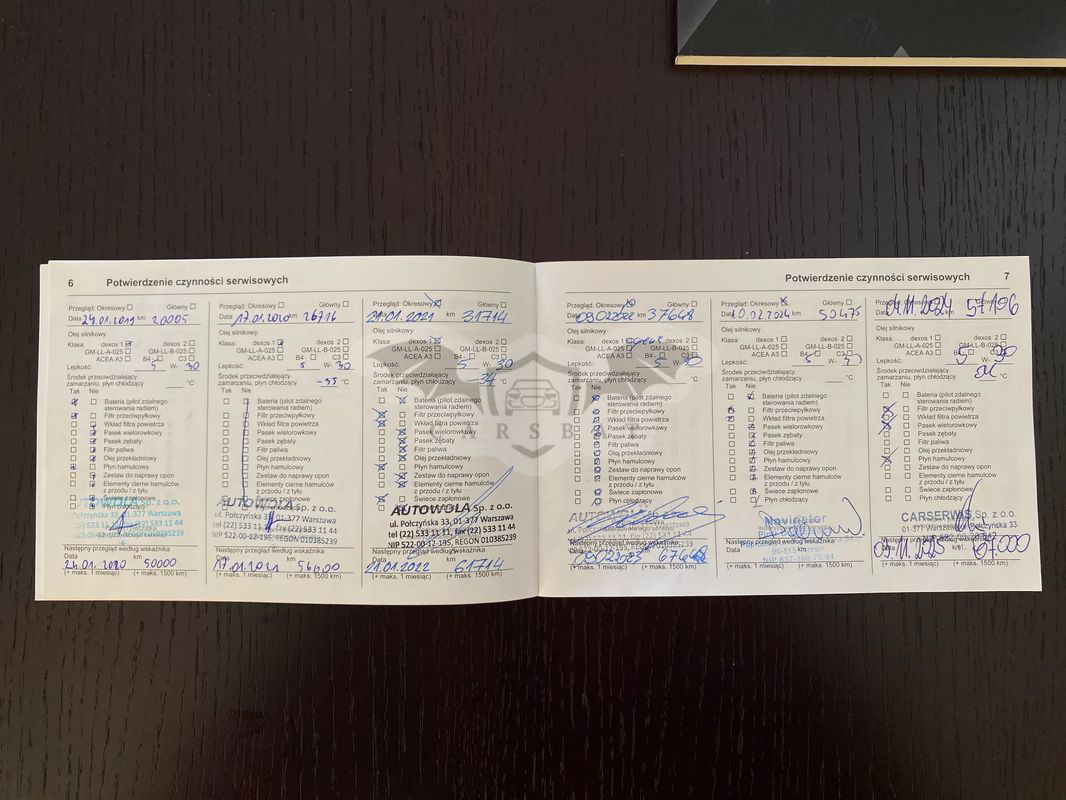 6 Potwierdzenie czynności serwisowych
Przegląd: Okresowy Główny
Data 24.01.2019 km 20005
Olej silnikowy
Klasa: dexos 1 dexos 2
GM-LL-A-025 GM-LL-B-025
ACEA A3 B4 C3
Lepkość: 5 W- 30
Środek przeciwdziałający
zamarzaniu, płyn chłodzący °C
Tak Nie
Bateria (pilot zdalnego
sterowania radiem)
Filtr przeciwpyłkowy
Wkład filtra powietrza
Pasek wielorowkowy
Pasek zębaty
Filtr paliwa
Olej przekładniowy
Płyn hamulcowy
Zestaw do naprawy opon
Elementy cierne hamulców
z przodu / z tyłu
Świece zapłonowe
Płyn chłodzący
Sp. z o.o.
Połczyńska 33, 01-377 Warszawa
Następny przegląd według wskaźnika
Data km
24.01.2020 50000
(+ maks. 1 miesiąc) (+ maks. 1500 km)
Przegląd: Okresowy Główny
Data 17.01.2020 km 26716
Olej silnikowy
Klasa: dexos 1 dexos 2
GM-LL-A-025 GM-LL-B-025
ACEA A3 B4 C3
Lepkość: 5 W- 30
Środek przeciwdziałający
zamarzaniu, płyn chłodzący -35 °C
Tak Nie
Bateria (pilot zdalnego
sterowania radiem)
Filtr przeciwpyłkowy
Wkład filtra powietrza
Pasek wielorowkowy
Pasek zębaty
Filtr paliwa
Olej przekładniowy
Płyn hamulcowy
Zestaw do naprawy opon
Elementy cierne hamulców
z przodu / z tyłu
Świece zapłonowe
Płyn chłodzący
AUTOWOLA Sp. z o.o.
ul. Połczyńska 33, 01-377 Warszawa
tel (22) 533 11 11, fax (22) 533 11 44
NIP 522-00-12-195, REGON 010385239
Następny przegląd według wskaźnika
Data km
17.01.2021 56000
(+ maks. 1 miesiąc) (+ maks. 1500 km)
Przegląd: Okresowy Główny
21.01.2021 31714
Olej silnikowy
Klasa: dexos 1 dexos 2
GM-LL-A-025 GM-LL-B-025
ACEA A3 B4 C3
Lepkość: 5 W- 30
Środek przeciwdziałający
zamarzaniu, płyn chłodzący -34 °C
Tak Nie
Bateria (pilot zdalnego
sterowania radiem)
Filtr przeciwpyłkowy
Wkład filtra powietrza
Pasek wielorowkowy
Pasek zębaty
Filtr paliwa
Olej przekładniowy
Płyn hamulcowy
Zestaw do naprawy opon
Elementy cierne hamulców
z przodu / z tyłu
Świece zapłonowe
AUTOWOLA Sp. z o.o.
ul. Połczyńska 33, 01-377 Warszawa
tel (22) 533 11 11, fax (22) 533 11 44
NIP 522-00-12-195, REGON 010385239
Następny przegląd według wskaźnika
Data km
21.01.2022 61714
(+ maks. 1 miesiąc) (+ maks. 1500 km)
Potwierdzenie czynności serwisowych 7
Przegląd: Okresowy Główny
Data 03.02.2022 km 37648
Olej silnikowy
Klasa: dexos 1 dexos 2
GM-LL-A-025 GM-LL-B-025
ACEA A3 B4 C3
Lepkość: 5 W- 30
Środek przeciwdziałający
zamarzaniu, płyn chłodzący °C
Tak Nie
Bateria (pilot zdalnego
sterowania radiem)
Filtr przeciwpyłkowy
Wkład filtra powietrza
Pasek wielorowkowy
Pasek zębaty
Filtr paliwa
Olej przekładniowy
Płyn hamulcowy
Zestaw do naprawy opon
Elementy cierne hamulców
z przodu / z tyłu
Świece zapłonowe
Płyn chłodzący
AUTOWOLA
Następny przegląd według wskaźnika
Data km
03.02.2023 67648
(+ maks. 1 miesiąc) (+ maks. 1500 km)
Przegląd: Okresowy Główny
Data 10.02.2024 km 50475
Olej silnikowy
Klasa: dexos 1 dexos 2
GM-LL-A-025 GM-LL-B-025
ACEA A3 B4 C3
Lepkość: 5 W- 30
Środek przeciwdziałający
zamarzaniu, płyn chłodzący °C
Tak Nie
Bateria (pilot zdalnego
sterowania radiem)
Filtr przeciwpyłkowy
Wkład filtra powietrza
Pasek wielorowkowy
Pasek zębaty
Filtr paliwa
Olej przekładniowy
Płyn hamulcowy
Zestaw do naprawy opon
Elementy cierne hamulców
z przodu / z tyłu
Świece zapłonowe
Płyn chłodzący
Navigator
NIP 837-160-70-64
Następny przegląd według wskaźnika
Data km
(+ maks. 1 miesiąc) (+ maks. 1500 km)
Przegląd: Okresowy Główny
04.11.2024 57196
Olej silnikowy
Klasa: dexos 1 dexos 2
GM-LL-A-025 GM-LL-B-025
ACEA A3 B4 C3
Lepkość: 5 W- 30
Środek przeciwdziałający
zamarzaniu, płyn chłodzący °C
Tak Nie
Bateria (pilot zdalnego
sterowania radiem)
Filtr przeciwpyłkowy
Wkład filtra powietrza
Pasek wielorowkowy
Pasek zębaty
Filtr paliwa
Olej przekładniowy
Płyn hamulcowy
Zestaw do naprawy opon
Elementy cierne hamulców
z przodu / z tyłu
Świece zapłonowe
Płyn chłodzący
CARSERWIS Sp. z o.o.
01-377 Warszawa, Połczyńska 33
Następny przegląd według wskaźnika
04.11.2025 km 67000
(+ maks. 1 miesiąc) (+ maks. 1500 km)
CARSBAY